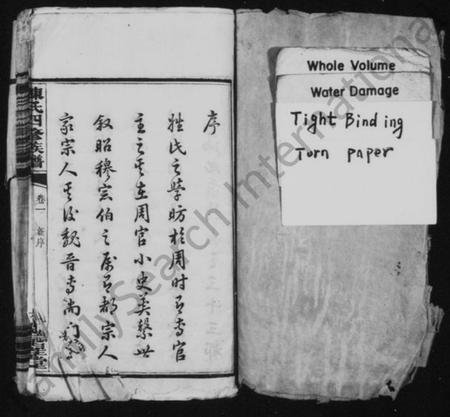 序
姓氏之學昉於周時有專官
主之其在周官小史奠繫世
敘昭穆宗伯之屬有都宗人
家宗人其後魏晉專尚門
陳氏四修族譜
卷一 新序
Whole Volume
Water Damage
Tight Binding
Torn paper
FamilySearch International